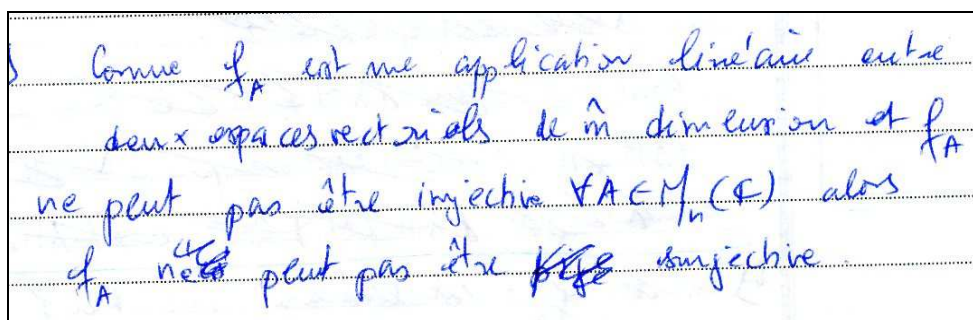 ) Comme f_A est une application linéaire entre
deux espaces vectoriels de m̂ dimension et f_A
ne peut pas être injective ∀A∈M_n(ℂ) alors
f_A ne peut pas être surjective.